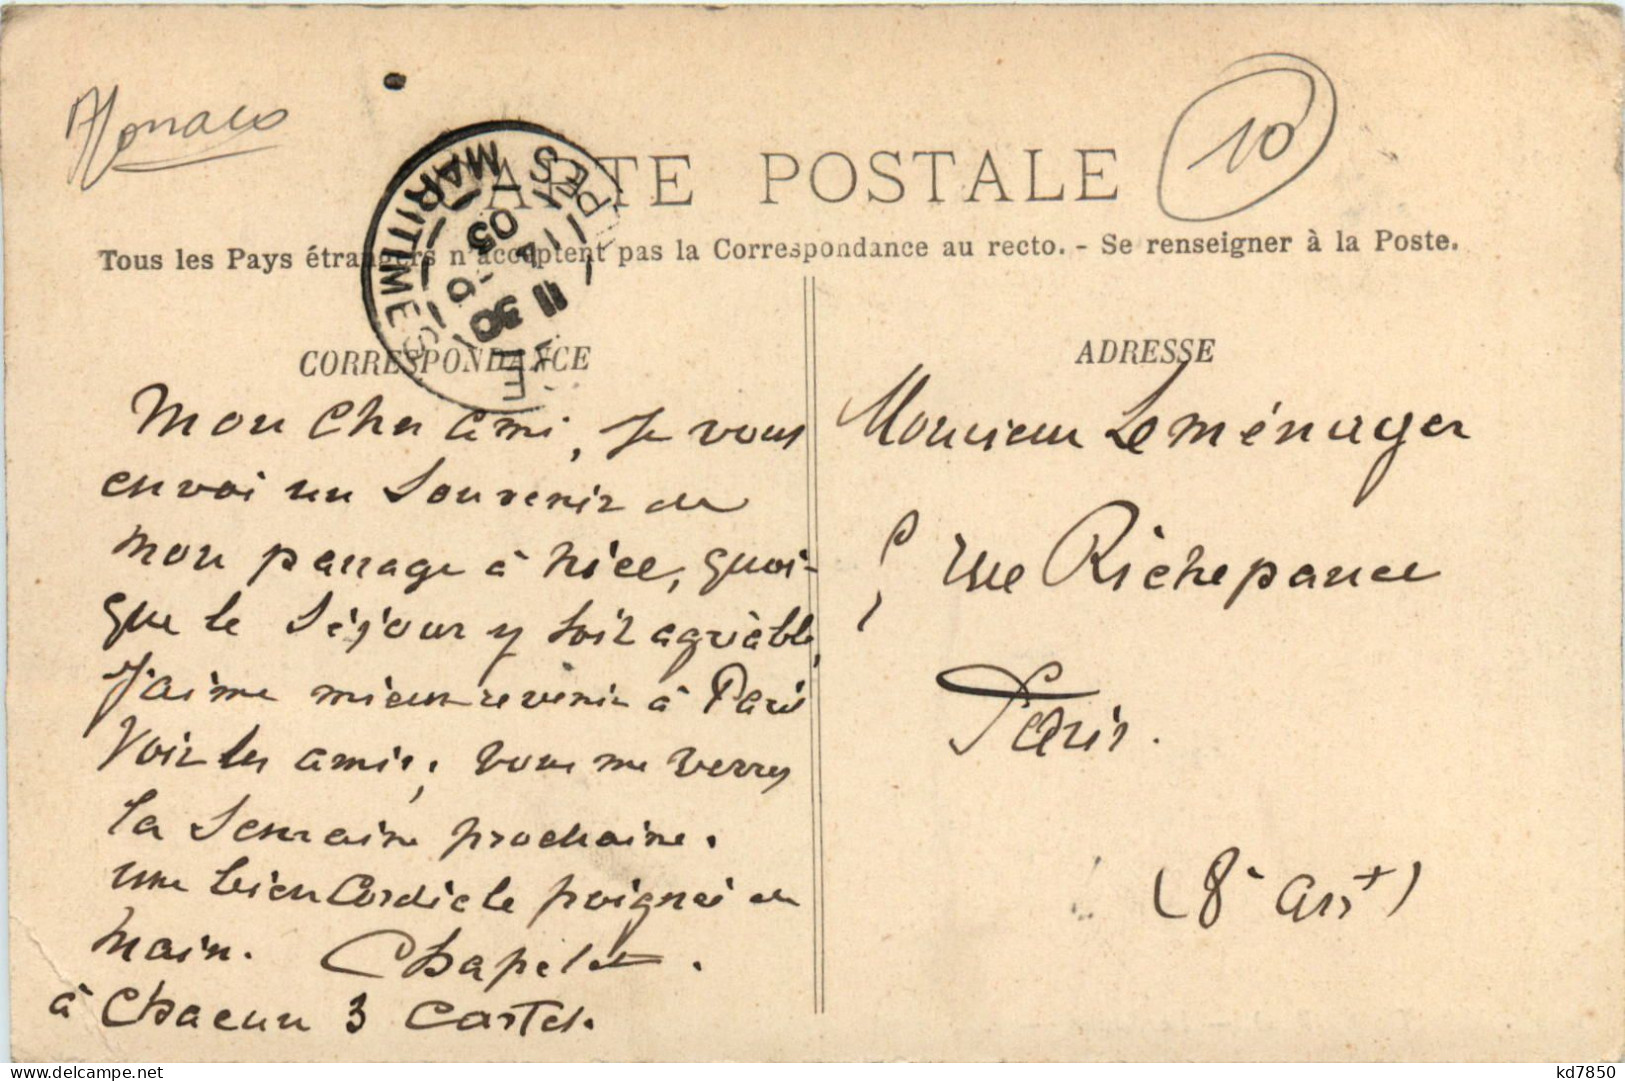 Monaco
10
CARTE POSTALE
Tous les Pays étrangers n'acceptent pas la Correspondance au recto. - Se renseigner à la Poste.
ALPES MARITIMES
11 30
05
CORRESPONDANCE
Mon Cher Ami, Je vous
envoi un Souvenir de
mon passage à Nice, quoi-
que le Séjour y soit agréable,
J'aime mieux revenir à Paris
Voir les amis, vous me verrez
la Semaine prochaine.
une bien Cordiale poignée de
main. Chapelet.
à Chacun 3 Cartes.
ADRESSE
Monsieur Leménager
rue Richepance
Paris.
(8e Arrt)
kd7850